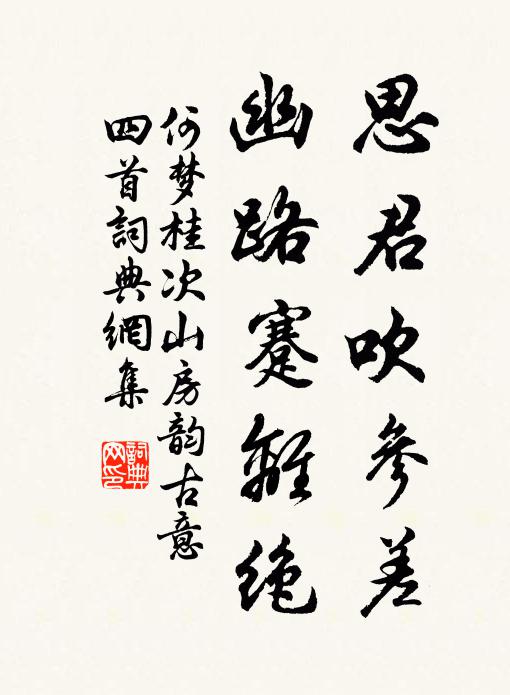 思君吹參差
幽路蹇難絶
何梦桂次山房韵古意
四首詞典網集
詞典網印